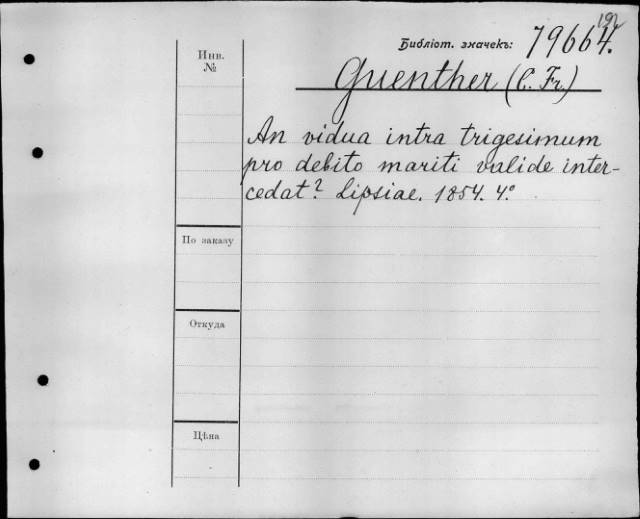 192
Библіот. значекъ: 79664.
Инв.
№
Guenther (C. Fr.)
An vidua intra trigesimum
pro debito mariti valide inter-
cedat? Lipsiae. 1854. 4.°
По заказу
Откуда
Цѣна